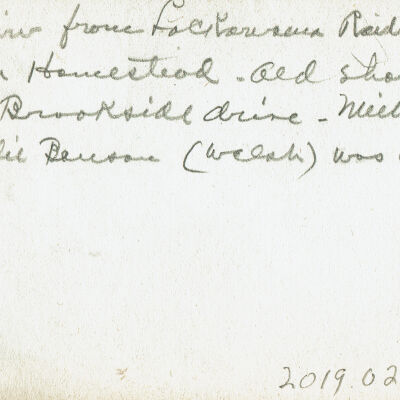 from Lackawanna Raid
Homestead - Old Sha
Brookside drive - Meil
Benson (Welsh) was
2019.02